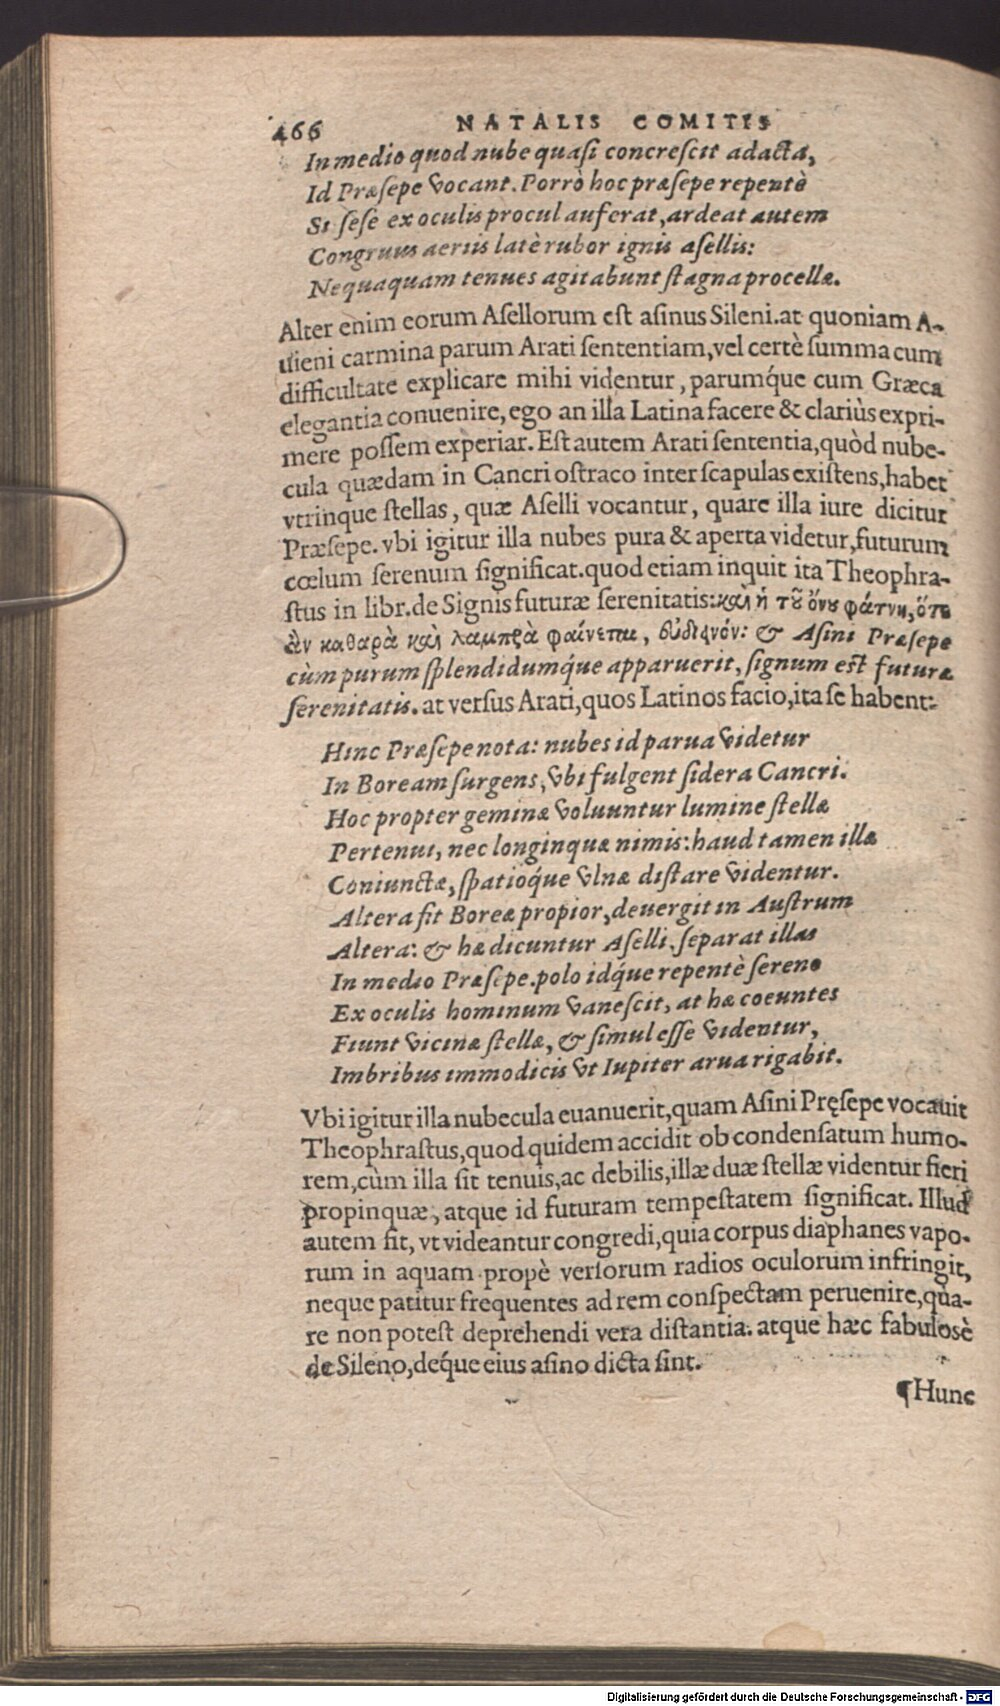 466 NATALIS COMITIS
In medio quod nube quaſi concreſcit adacta,
Id Præſepe vocant. Porrò hoc præſepe repentè
Si ſeſe ex oculis procul auferat, ardeat autem
Congruus aeriis latè rubor ignis aſellis:
Nequaquam tenues agitabunt ſtagna procellæ.
Alter enim eorum Aſellorum eſt aſinus Sileni. at quoniam A-
uieni carmina parum Arati ſententiam, vel certè ſumma cum
difficultate explicare mihi videntur, parumq́ue cum Græca
elegantia conuenire, ego an illa Latina facere & clariùs expri-
mere poſſem experiar. Eſt autem Arati ſententia, quòd nube-
cula quædam in Cancri oſtraco inter ſcapulas exiſtens, habet
vtrinque ſtellas, quæ Aſelli vocantur, quare illa iure dicitur
Præſepe. vbi igitur illa nubes pura & aperta videtur, futurum
cœlum ſerenum ſignificat. quod etiam inquit ita Theophra-
ſtus in libr. de Signis futuræ ſerenitatis: καὶ ἡ τοῦ ὄνου φάτνη, ὅτε
ἂν καθαρὰ καὶ λαμπρὰ φαίνεται, εὐδιεινόν: & Aſini Præſepe
cùm purum ſplendidumq́ue apparuerit, ſignum eſt futuræ
ſerenitatis. at verſus Arati, quos Latinos facio, ita ſe habent:
Hinc Præſepe nota: nubes id parua videtur
In Boream ſurgens, vbi fulgent ſidera Cancri.
Hoc propter geminæ voluuntur lumine ſtellæ
Pertenui, nec longinquæ nimis: haud tamen illæ
Coniunctæ, ſpatioq́ue vlnæ diſtare videntur.
Altera fit Boreæ propior, deuergit in Auſtrum
Altera: & hæ dicuntur Aſelli. ſeparat illas
In medio Præſepe. polo idq́ue repentè ſereno
Ex oculis hominum vaneſcit, at hæ coeuntes
Fiunt vicinæ ſtellæ, & ſimul eſſe videntur,
Imbribus immodicis vt Iupiter arua rigabit.
Vbi igitur illa nubecula euanuerit, quam Aſini Pręſepe vocauit
Theophraſtus, quod quidem accidit ob condenſatum humo-
rem, cùm illa ſit tenuis, ac debilis, illæ duæ ſtellæ videntur fieri
propinquæ, atque id futuram tempeſtatem ſignificat. Illud
autem fit, vt videantur congredi, quia corpus diaphanes vapo-
rum in aquam propè verſorum radios oculorum infringit,
neque patitur frequentes ad rem conſpectam peruenire, qua-
re non poteſt deprehendi vera diſtantia. atque hæc fabulosè
de Sileno, deq́ue eius aſino dicta ſint.
¶Hunc
Digitalisierung gefördert durch die Deutsche Forschungsgemeinschaft - DFG